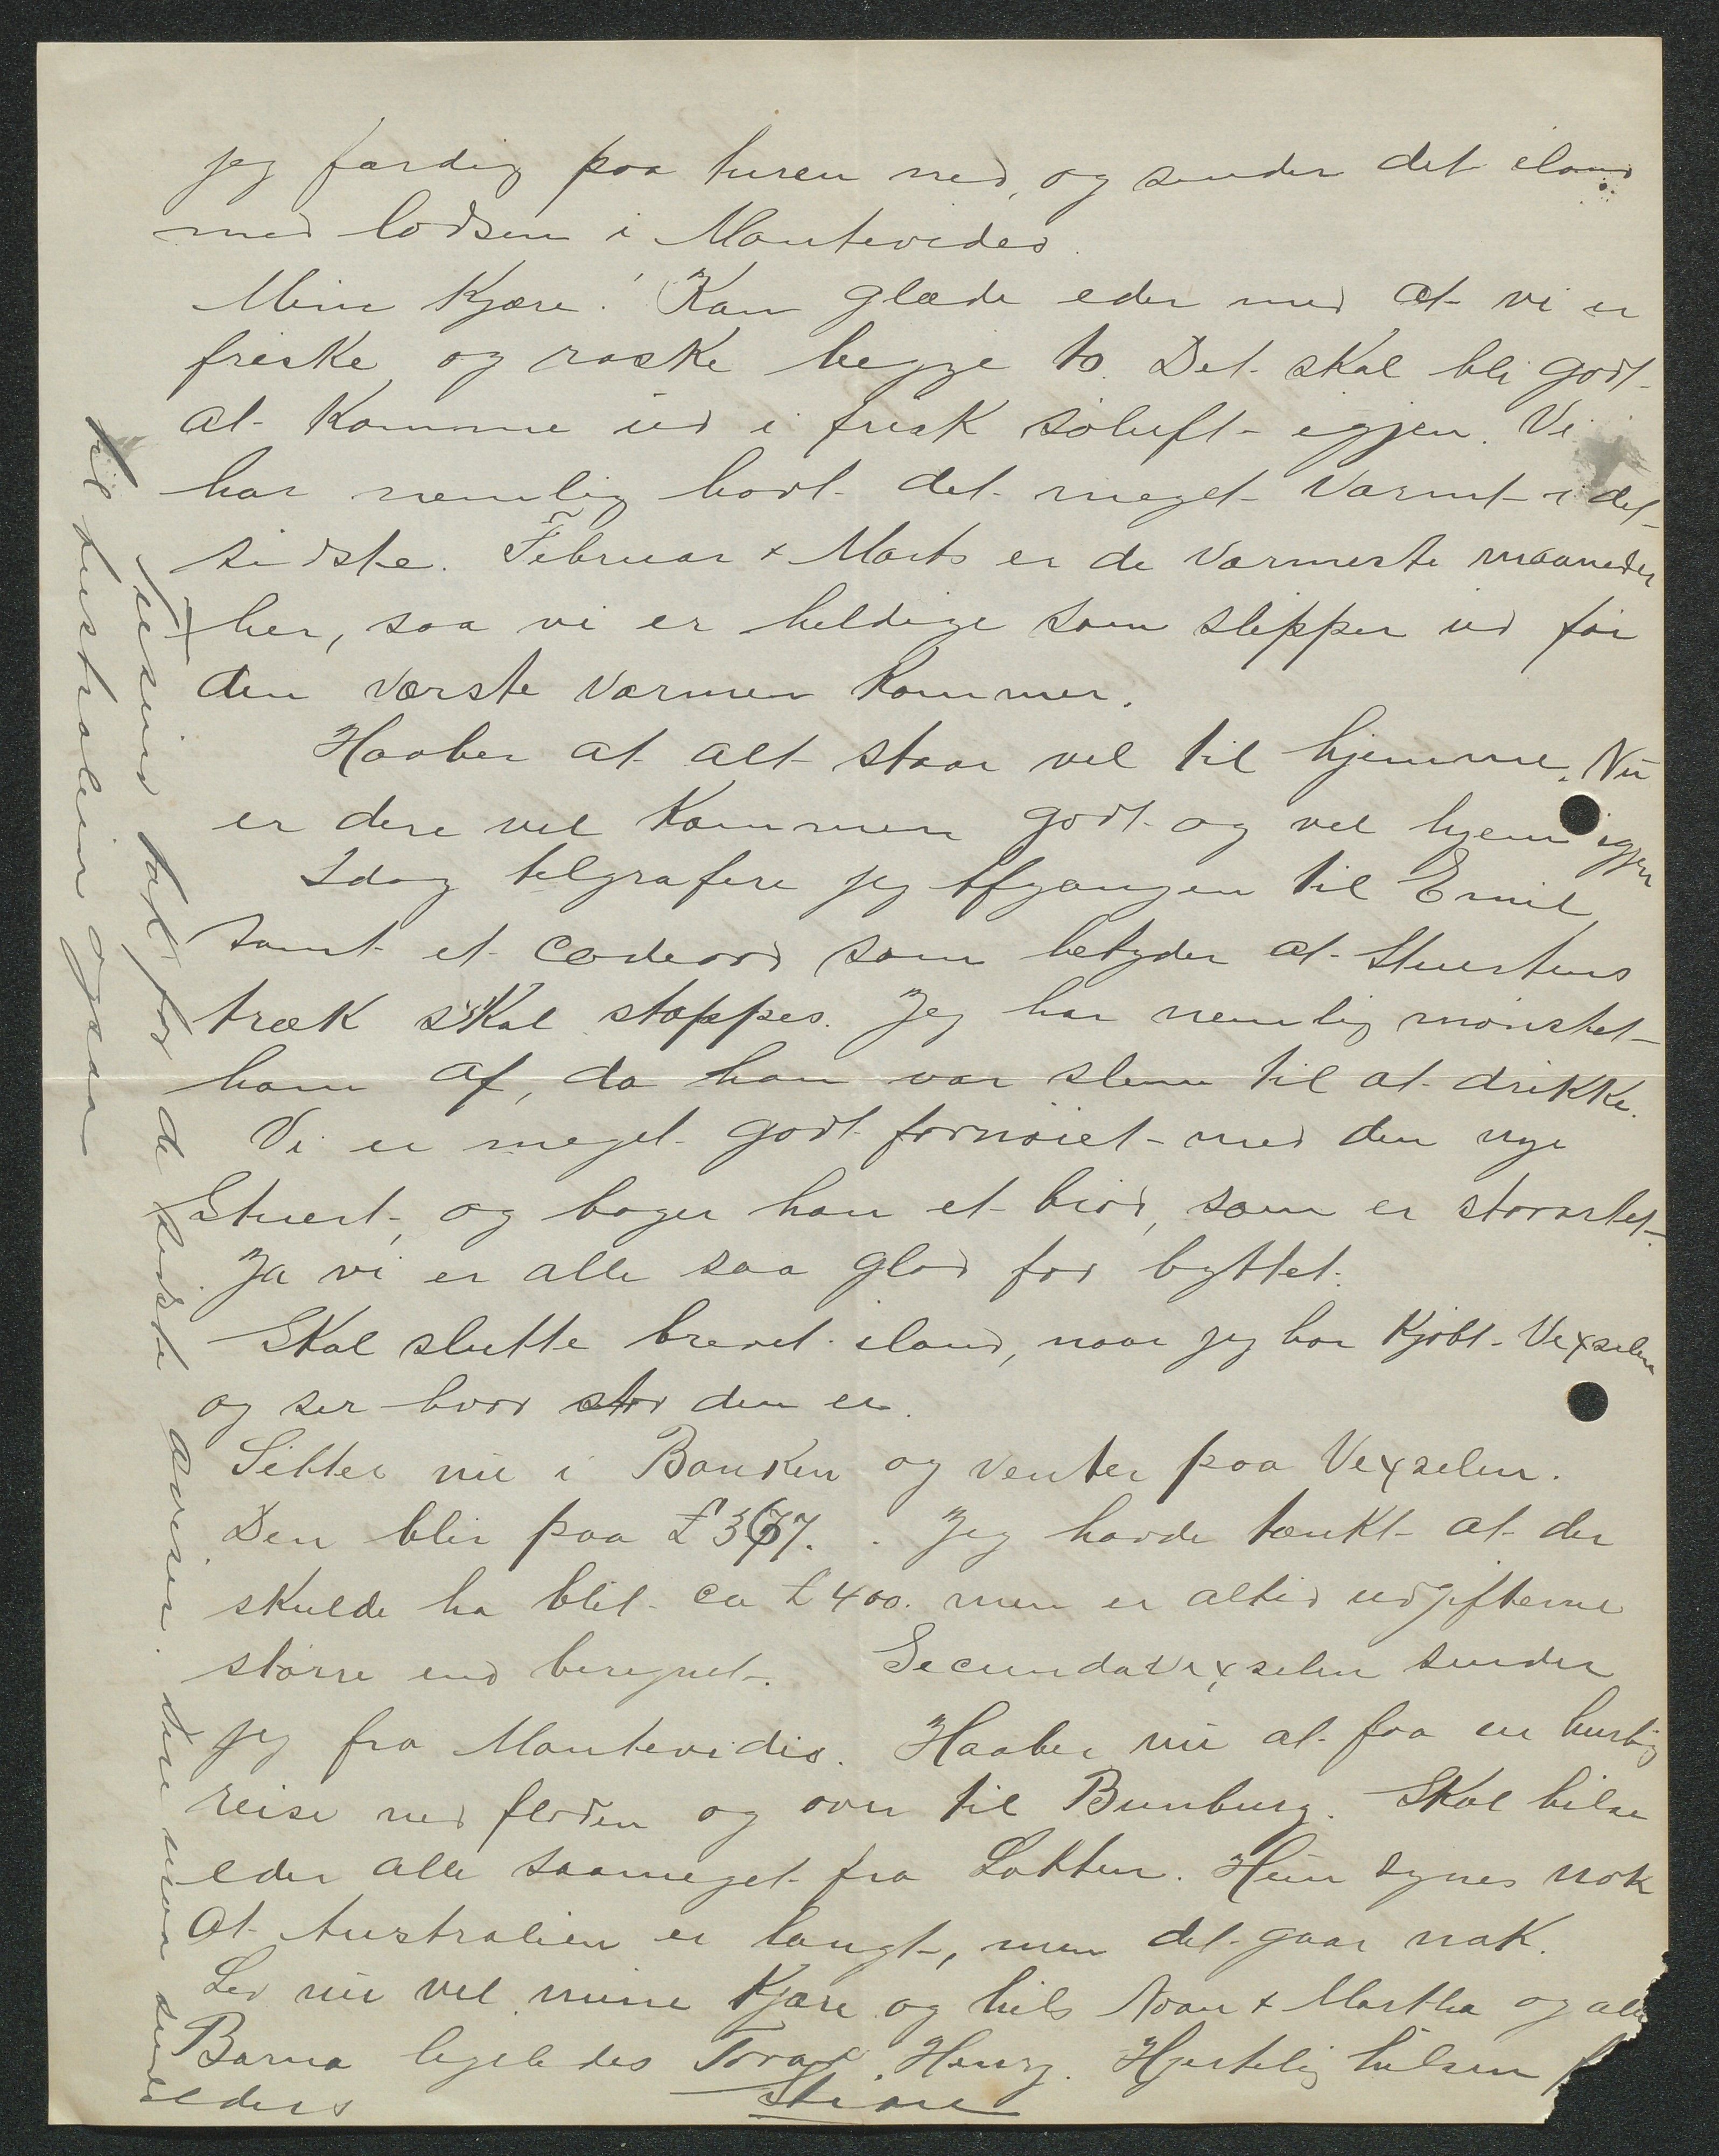 jeg færdig paa turen ned, og sender det iland
med lodsen i Montevideo.
Mine Kjære! Kan glæde eder med at vi er
friske og raske begge to. Det skal bli godt
at komme ud i frisk søluft igjen. Vi
har nemlig havt det meget varmt i det
sidste. Februar & Marts er de varmeste maaneder
her, saa vi er heldige som slipper ud før
den værste varmen kommer.
Haaber at alt staar vel til hjemme. Nu
er dere vel kommen godt og vel hjem igjen
Idag telgrafere jeg afgangen til Emil,
samt et codeord som betyder at Stuertens
træk skal stoppes. Jeg har nemlig mønstet
ham af, da han var slem til at drikke.
Vi er meget godt fornøiet med den nye
Stuert, og bager han et brød, som er storartet.
Ja vi er alle saa glad for byttet.
Skal slutte brevet iland, naar jeg har kjøbt Vexselen
og ser hvor stor den er.
Sitter nu i Banken og venter paa Vexselen.
Den blir paa £367. Jeg havde tænkt at der
skulde ha blit ca £400. men er altid udgifterne
større end beregnet. Secundavexselen sender
jeg fra Montevidio. Haaber nu at faa en hurtig
reise ned floden og over til Bunbury. Skal hilse
eder alle saameget fra Lotten. Hun synes nok
at Australien er langt, men det gaar nok.
Lev nu vel mine Kjære og hils Aran & Martha og alle
Barna ligeledes Tora & Henry. Hjertelig hilsen
eders
Tusind tak for de sidste aviser. Dere maa sende
til Australien ogsaa